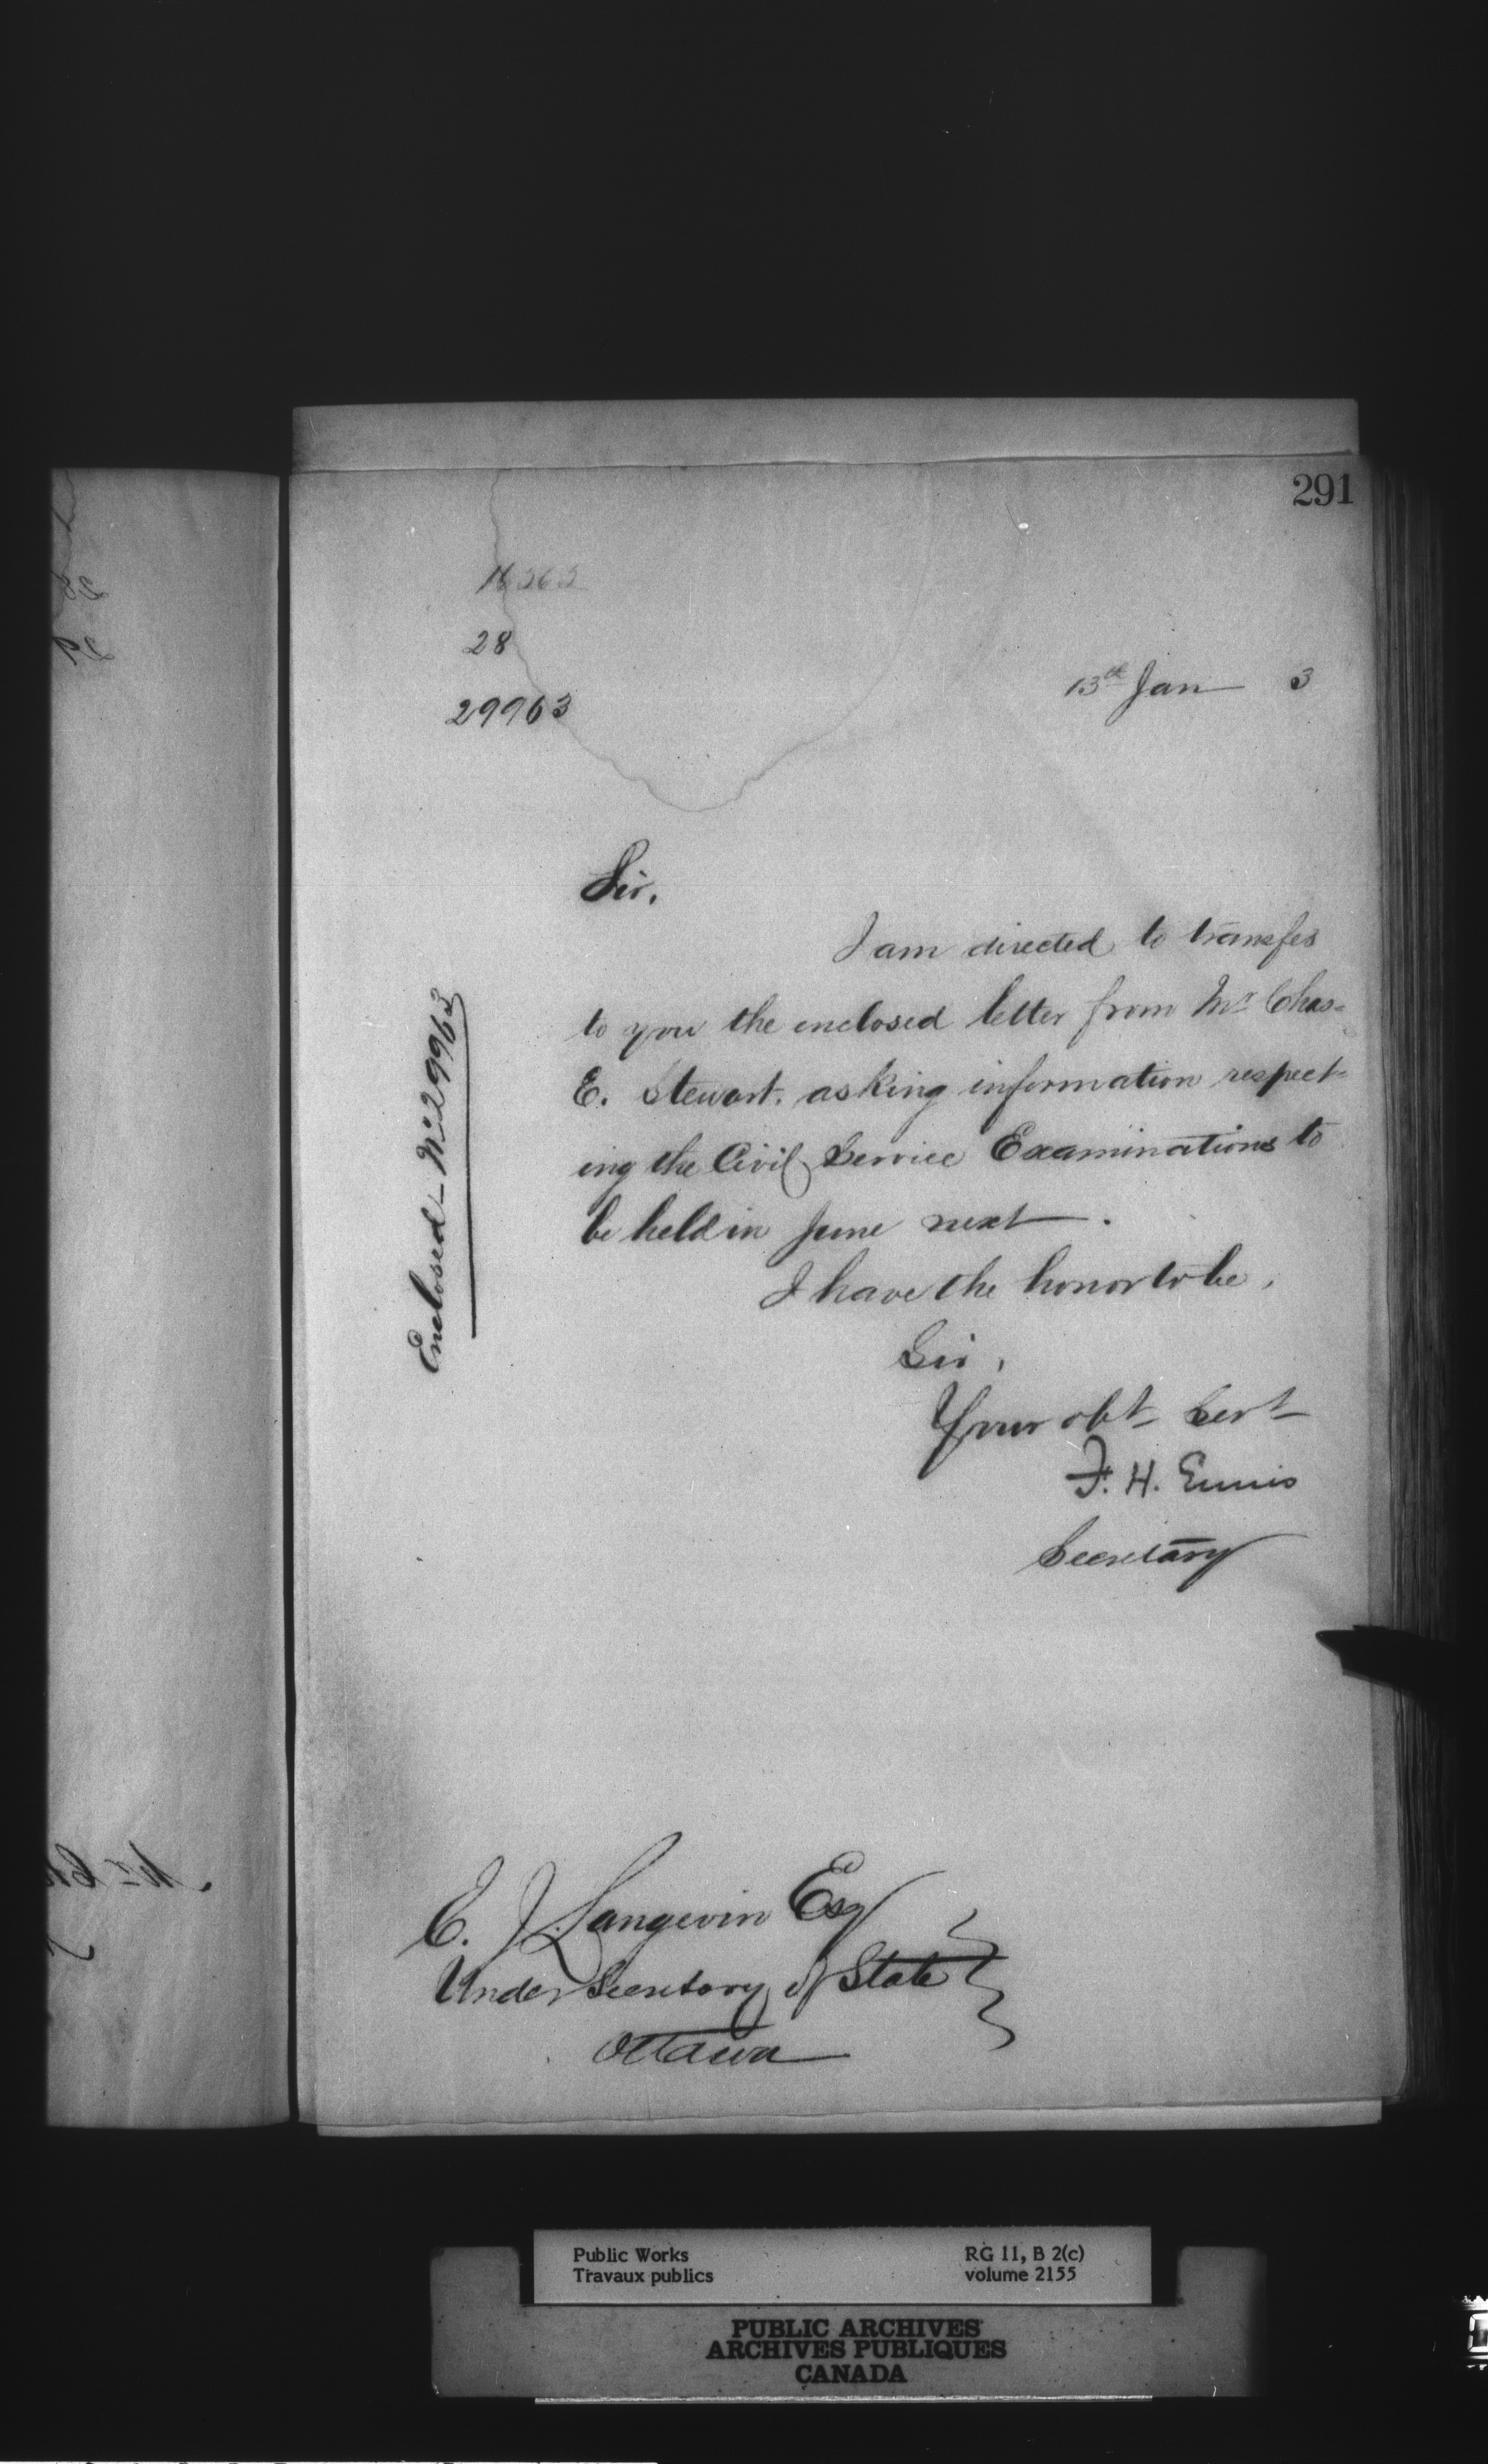 291
28
29963
13th Jan 3
Sir,
I am directed to transfer
to you the enclosed letter from Mr Chas=
E. Stewart, asking information respect=
ing the Civil Service Examinations to
be held in June next.
I have the honor to be,
Sir,
Your obt Servt
F. H. Ennis
Secretary
Enclosed No 29963
E. J. Langevin Esq
Under Secretary of State
Ottawa
Public Works
Travaux publics
RG 11, B 2(c)
volume 2155
PUBLIC ARCHIVES
ARCHIVES PUBLIQUES
CANADA